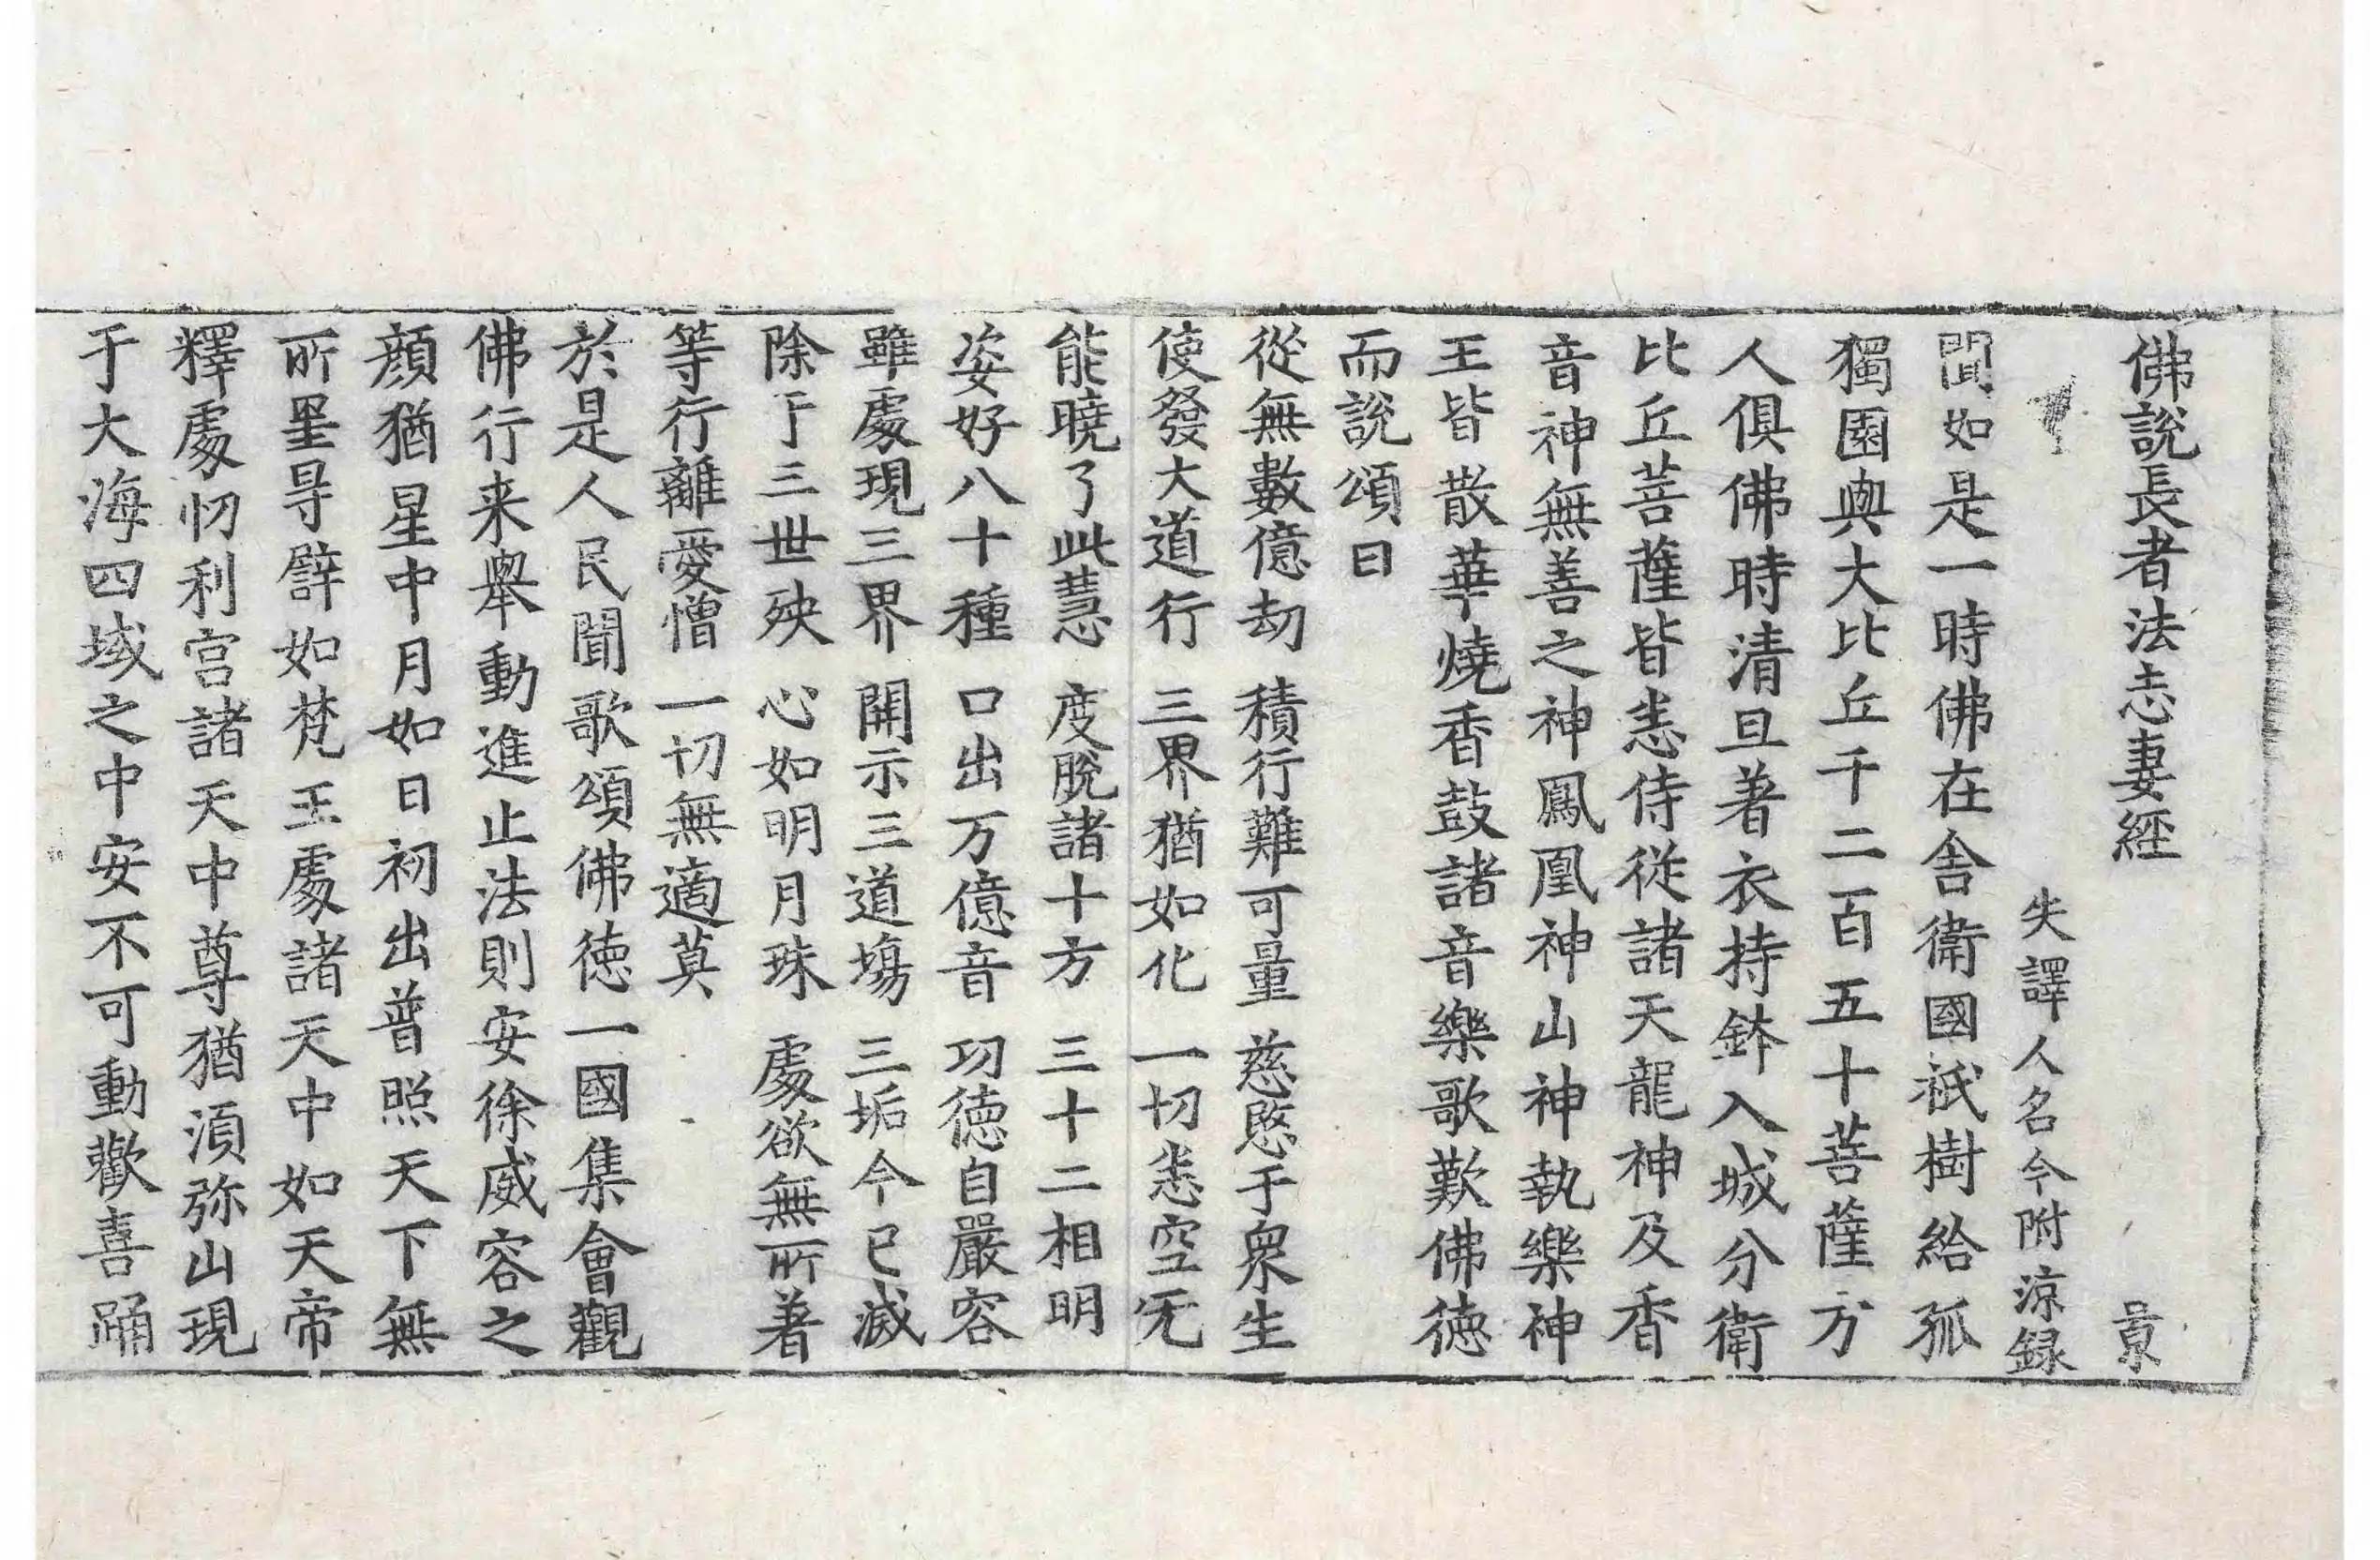 佛說長者法志妻經 景
失譯人名今附涼録
聞如是一時佛在舍衛國祇樹給孤
獨園與大比丘千二百五十菩薩万
人俱佛時清旦著衣持鉢入城分衛
比丘菩薩皆悉侍從諸天龍神及香
音神無善之神鳳凰神山神執樂神
王皆散華燒香鼓諸音樂歌歎佛德
而說頌曰
從無數億劫 積行難可量 慈愍于衆生
使發大道行 三界猶如化 一切悉空无
能曉了此慧 度脫諸十方 三十二相明
姿好八十種 口出万億音 功德自嚴容
雖處現三界 開示三道場 三垢今已滅
除于三世殃 心如明月珠 處欲無所著
等行離愛憎 一切無適莫
於是人民聞歌頌佛德一國集會觀
佛行来舉動進止法則安徐威容之
顔猶星中月如日初出普照天下無
所罣㝵譬如梵王處諸天中如天帝
釋處忉利宫諸天中尊猶須弥山現
于大海四域之中安不可動歡喜踊